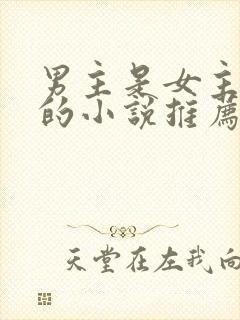 男主是女主
的小說推薦
天堂在左我向